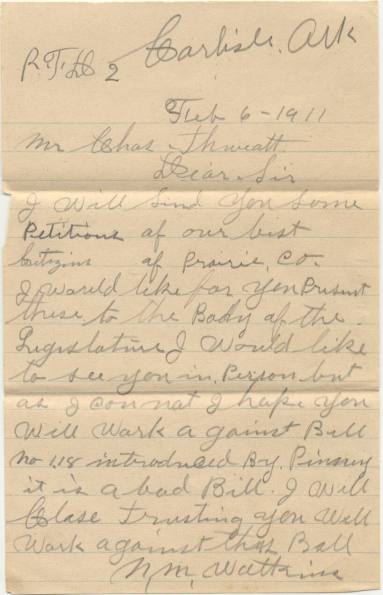 Carlisle, Ark
R.F.D 2
Feb 6-1911
Mr Chas Thweatt
Dear Sir
I Will Send You Some
Petitions of our best
Citizins of Prairie, Co.
I Would like for you Present
these to the Body of the
Legislature I Would like
to see you in, Person but
as I Con not I hope You
Will Work a gainst Bill
no 118 introduced By,
it is a bad Bill. I Will
Close trusting you Will
Work against that Bill
Watkins